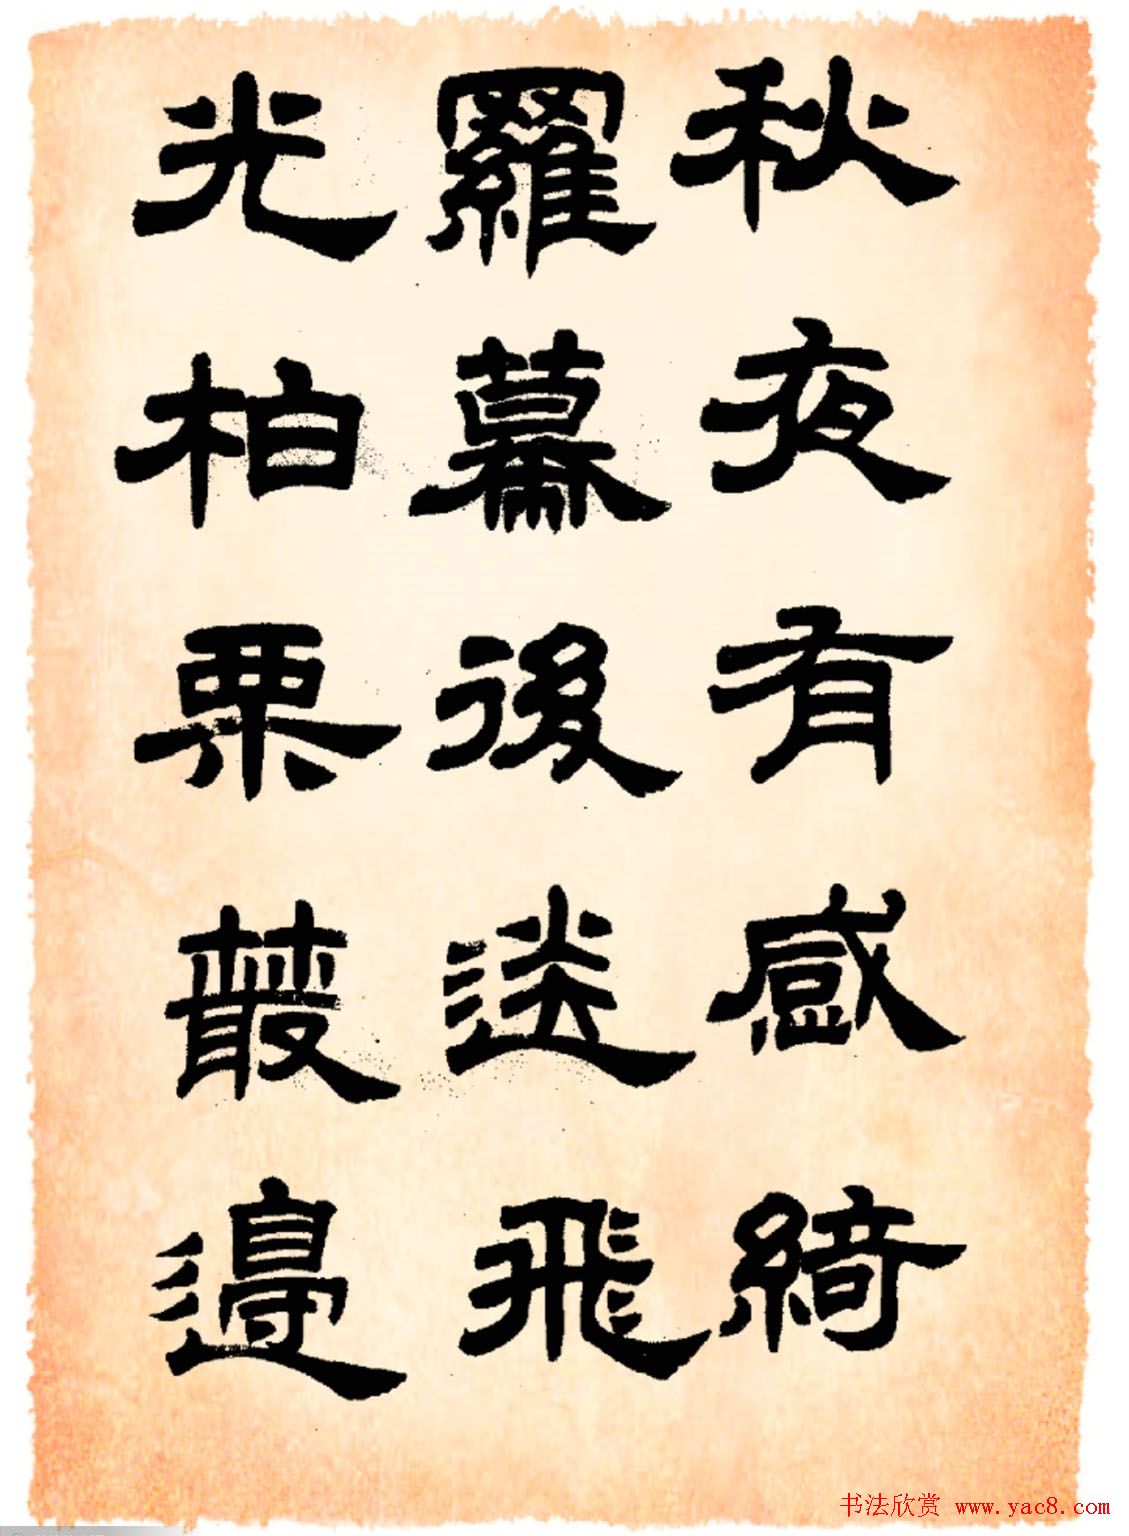 秋夜有感綺
羅幕後送飛
光柏栗叢邊
书法欣赏 www.yac8.com